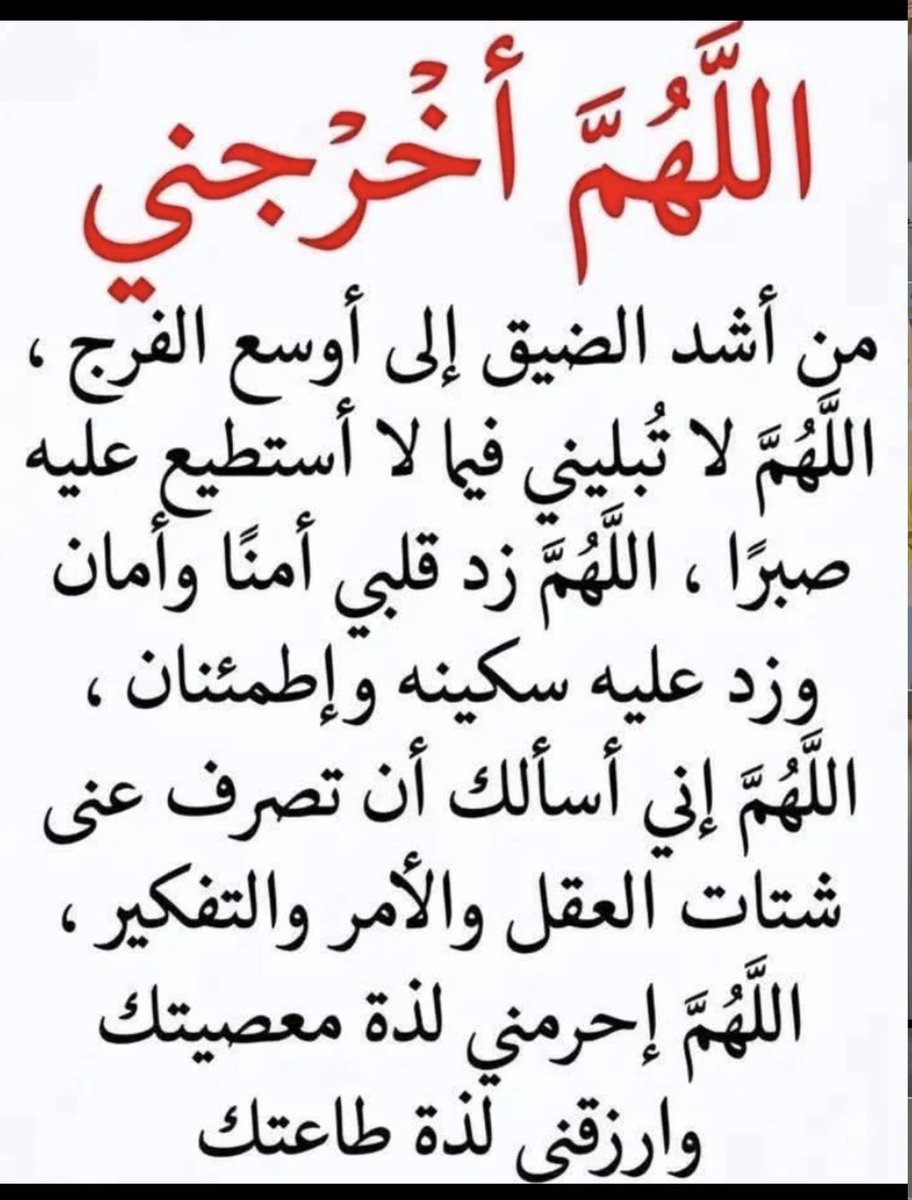 اللَّهُمَّ أخْرْجني
من أشد الضيق إلى أوسع الفرج ،
اللَّهُمَّ لا تُبليني فيما لا أستطيع عليه
صبرًا ، اللَّهُمَّ زد قلبي أمنًا وأمان
وزد عليه سكينه وإطمئنان ،
اللَّهُمَّ إني أسألك أن تصرف عنى
شتات العقل والأمر والتفكير ،
اللَّهُمَّ إحرمني لذة معصيتك
وارزقني لذة طاعتك